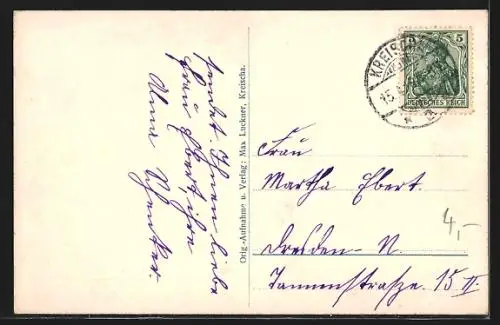 sendet Ihnen liebe
Frau Ebert, ihre
Anna
Orig.-Aufnahme u. Verlag: Max Luckner, Kreischa.
KREISCHA
15.
5
DEUTSCHES REICH
Frau
Martha Ebert.
Dresden-N.
Tannenstraße 15 II.
4,-